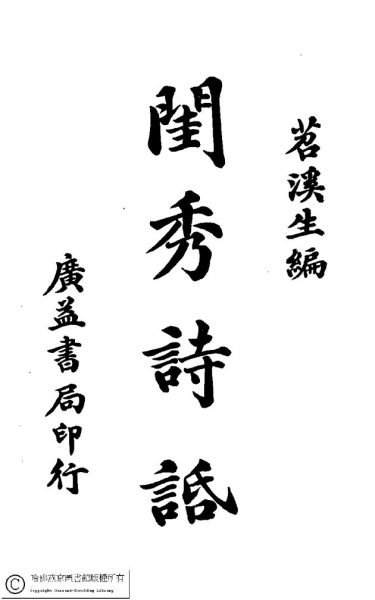 苕溪生編
閨秀詩話
廣益書局印行
哈佛燕京圖書館版權所有
Copyright Harvard-Yenching Library